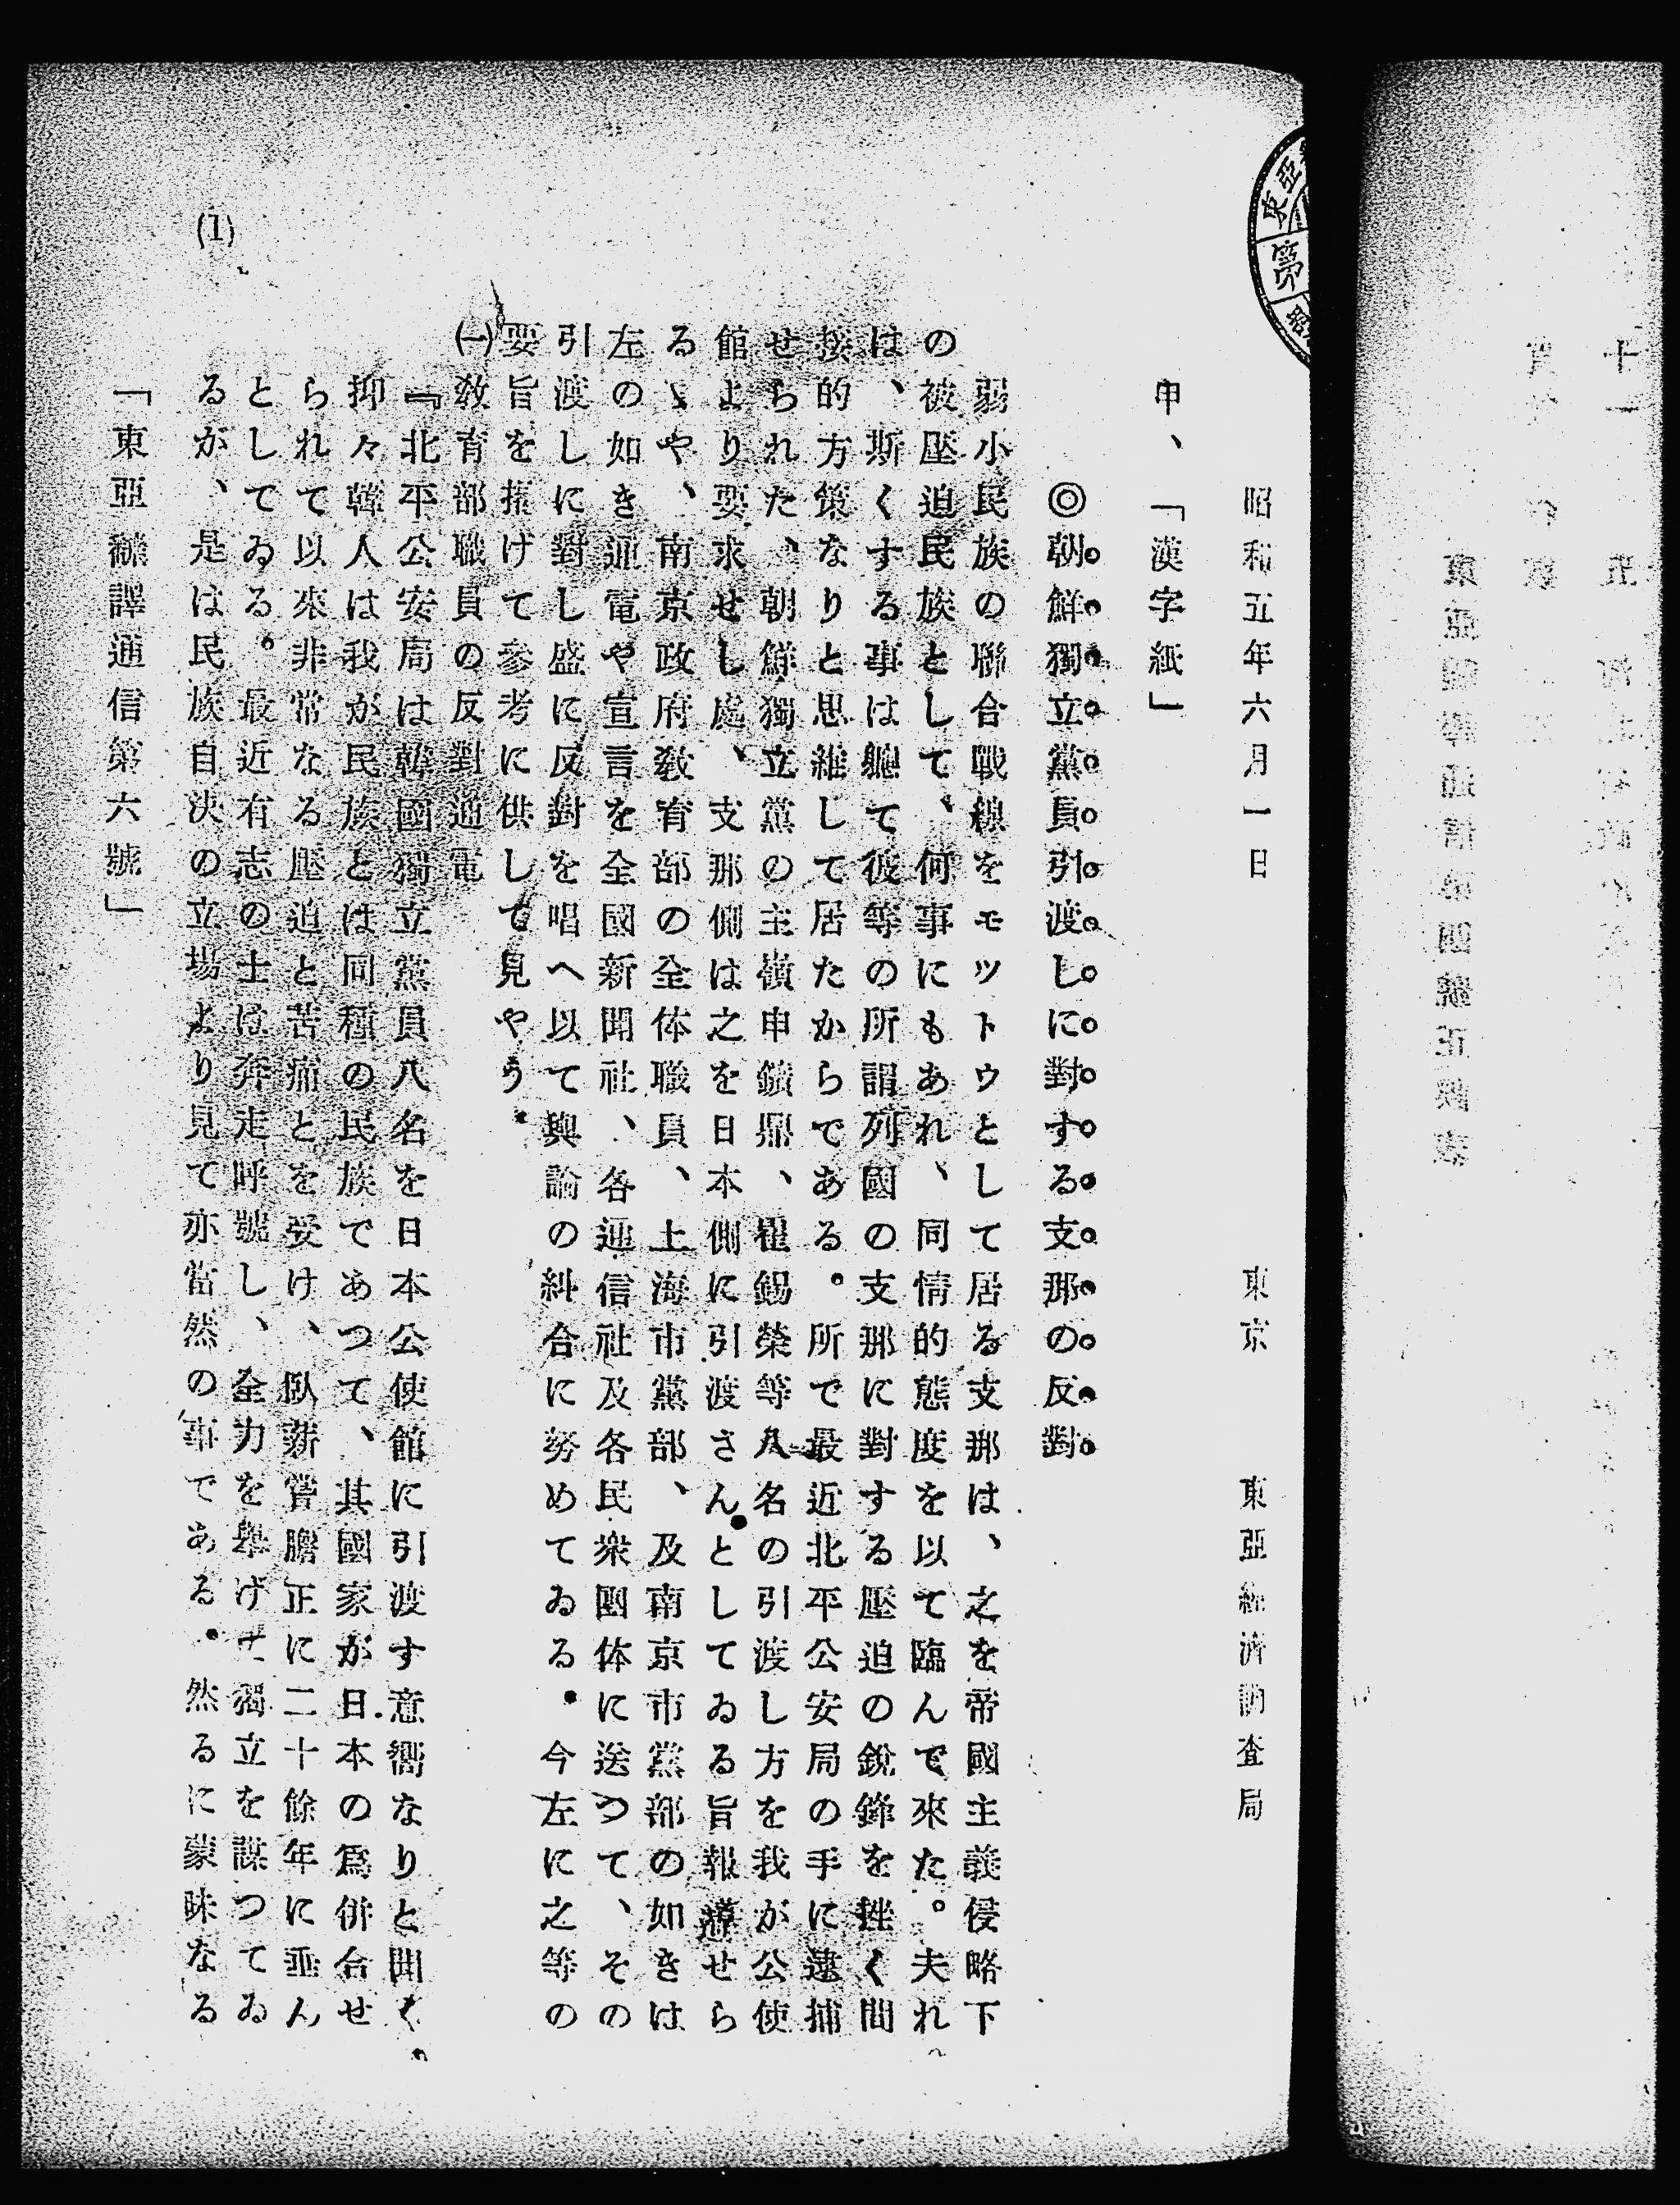 昭和五年六月一日 東京 東亞經濟調査局
甲、「漢字紙」
◎朝鮮獨立黨員引渡しに對する支那の反對
弱小民族の聯合戰線をモツトウとして居る支那は、之を帝國主義侵略下
の被壓迫民族として、何事にもあれ、同情的態度を以て臨んで來た。夫れ
は、斯くする事は軈て彼等の所謂列國の支那に對する壓迫の銳鋒を挫く間
接的方策なりと思維して居たからである。所で最近北平公安局の手に逮捕
せられた、朝鮮獨立黨の主領申鎮鼎、崔錫榮等八名の引渡し方を我が公使
館より要求せし處、支那側は之を日本側に引渡さんとしてゐる旨報導せら
るゝや、南京政府敎育部の全体職員、上海市黨部、及南京市黨部の如きは
左の如き通電や宣言を全國新聞社、各通信社及各民衆團体に送つて、その
引渡しに對し盛に反對を唱へ以て輿論の糾合に努めてゐる。今左に之等の
要旨を揭げて參考に供して見やう。
㈠敎育部職員の反對通電
『北平公安局は韓國獨立黨員八名を日本公使館に引渡す意嚮なりと聞く、
抑々韓人は我が民族とは同種の民族であつて、其國家が日本の爲併合せ
られて以來非常なる壓迫と苦痛とを受け、臥薪嘗膽正に二十餘年に垂ん
としてゐる。最近有志の士は奔走呼號し、全力を擧げて獨立を謀つてゐ
るが、是は民族自決の立場より見て亦當然の事である。然るに蒙昧なる
「東亞飜譯通信第六號」
(1)